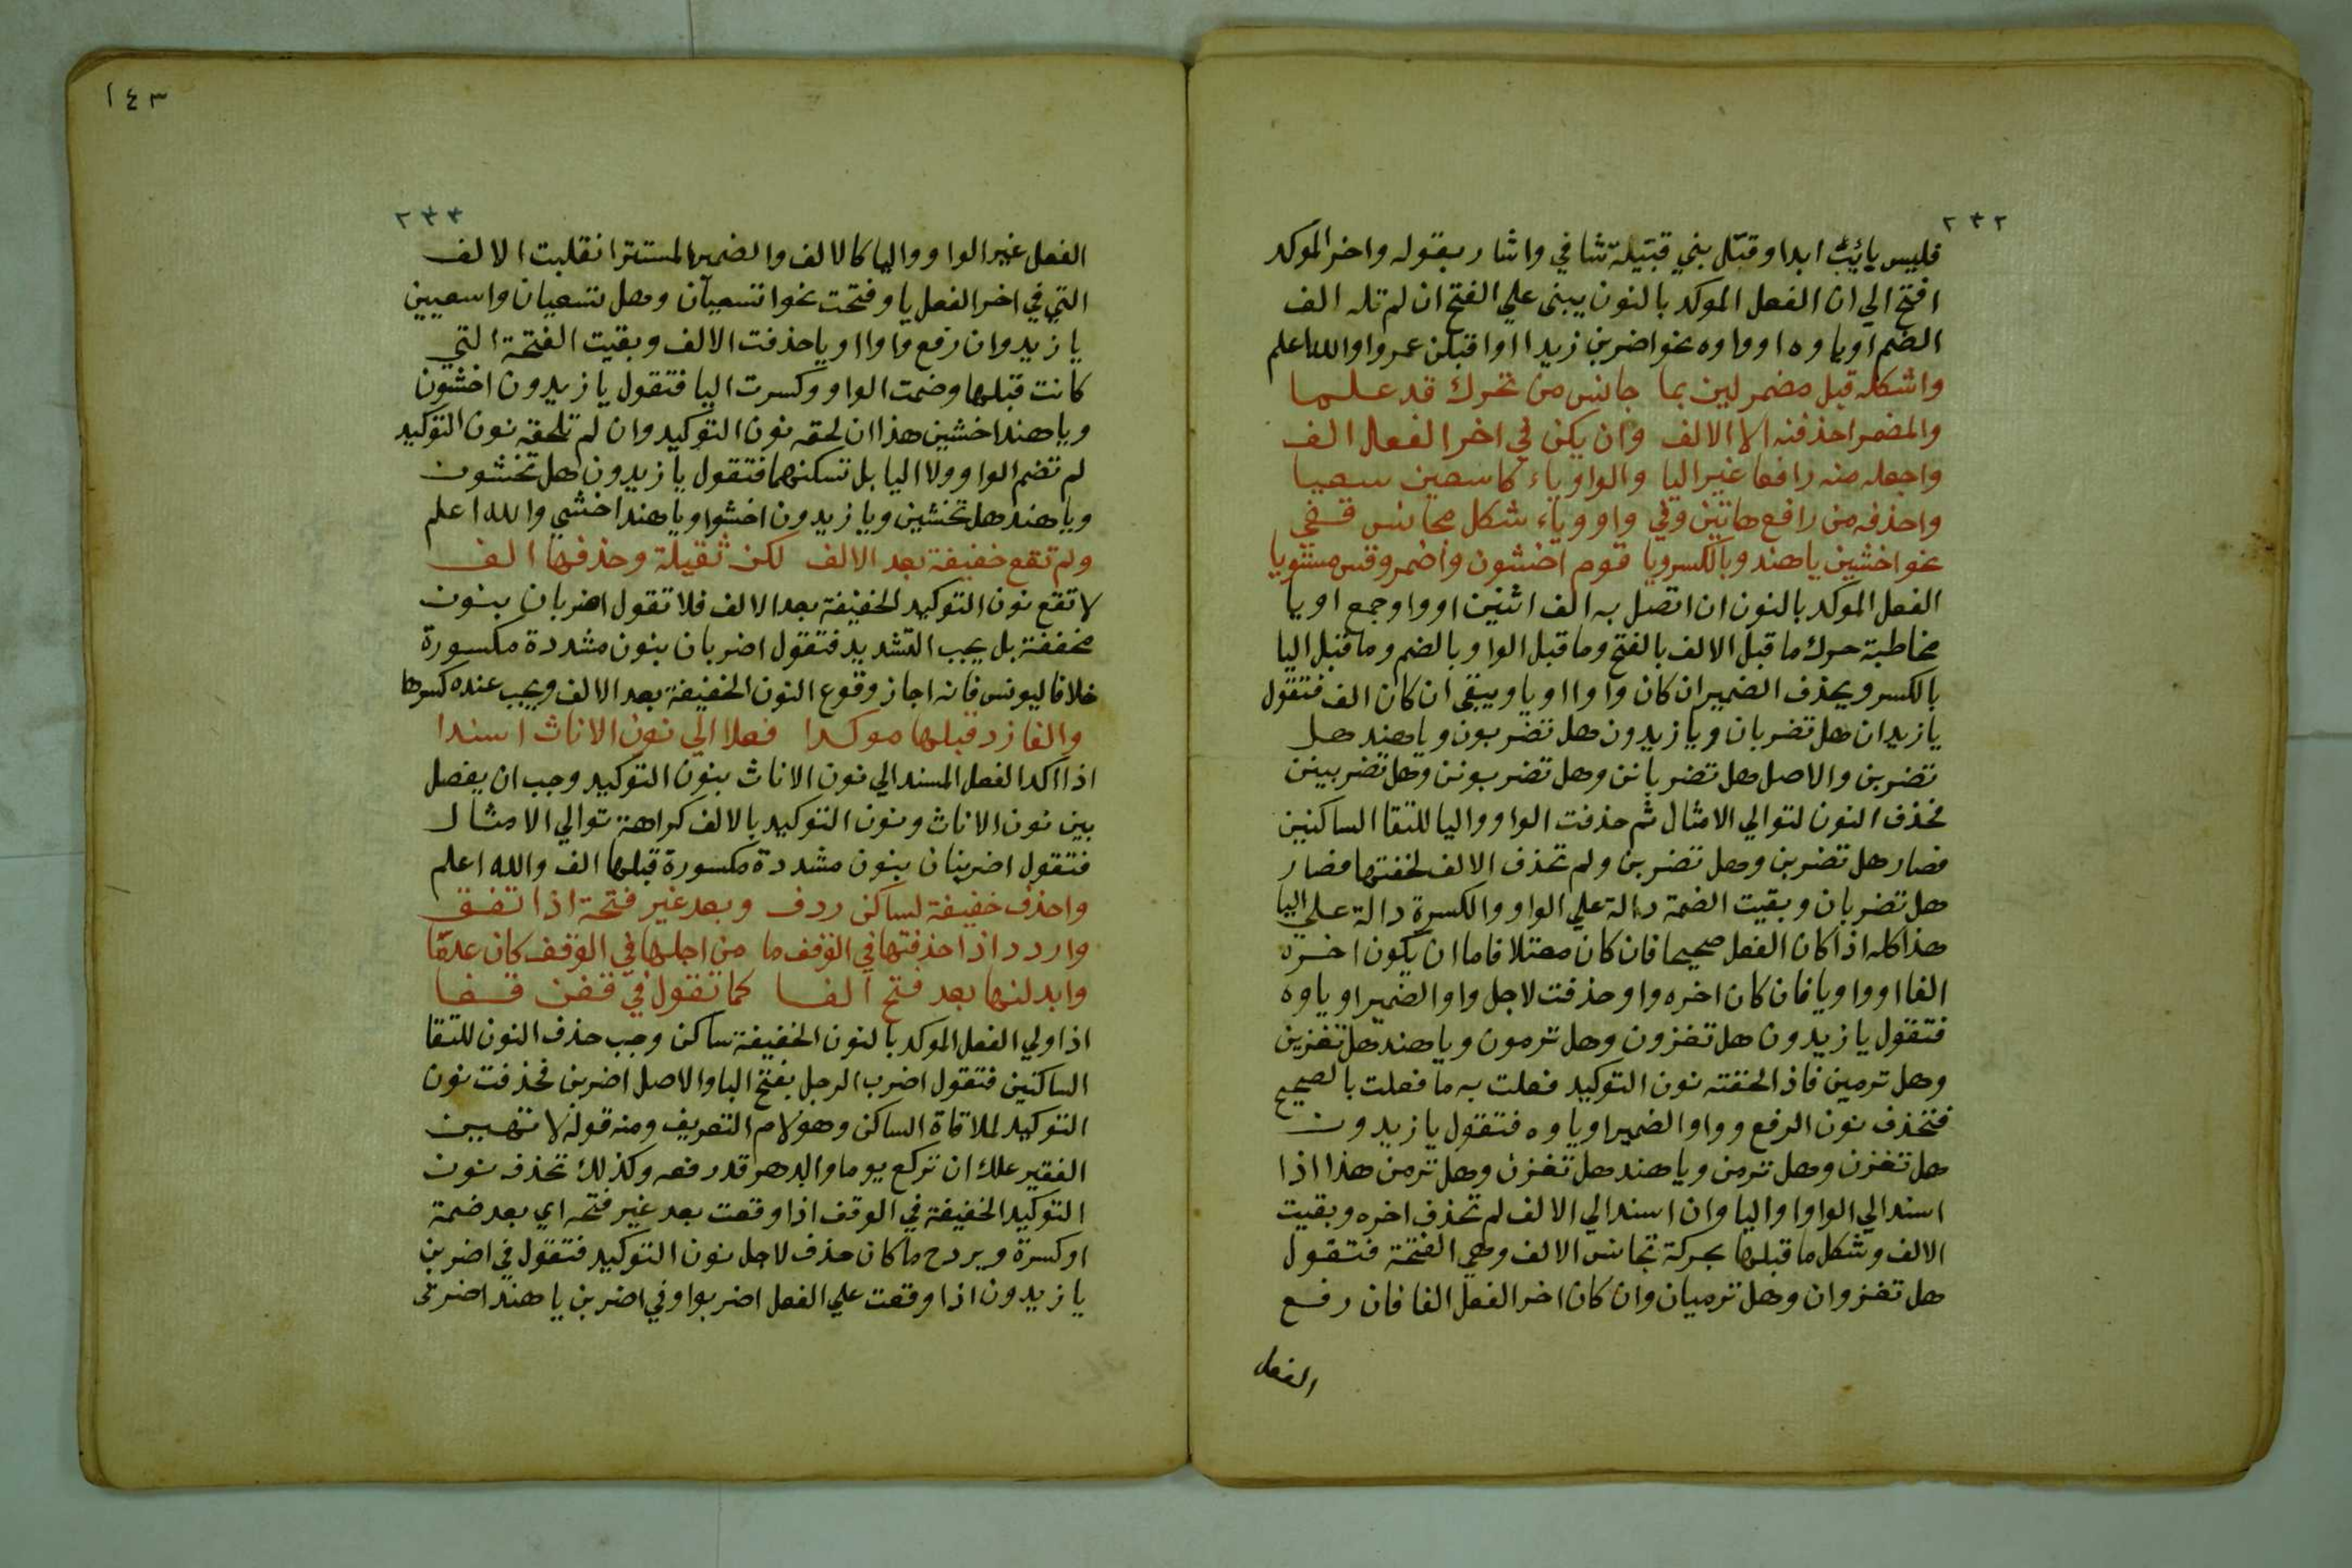 ٢٣٢
فليس بائيب ابدا وقتل بني قتيلة شافي واشار بقوله واخر الموكد
افتح الي ان الفعل الموكد بالنون يبنى علي الفتح ان لم تله الف
الضم او ياوه او واوه نحو اضربن زيدا او اقتلن عمروا والله اعلم
واشكله قبل مضمر لين بما جانس من تحرك قد علما
والمضمر احذفنه الا الالف وان يكن في اخر الفعل الف
واجعله منه رافعا غير اليا والواو ياء كاسعين سعيا
واحذفه من رافع هاتين وفي واو وياء شكل مجانس قفي
نحو اخشين ياهند وبالكسر ويا قوم اخشون واضمر وقس مستويا
الفعل الموكد بالنون ان اتصل به الف اثنين او واو جمع او يا
مخاطبة حرك ما قبل الالف بالفتح وما قبل الواو بالضم وما قبل اليا
بالكسر ويحذف الضمير ان كان واوا او يا ويبقى ان كان الف فتقول
يا زيدان هل تضربان ويا زيدون هل تضربون ويا هند هل
تضربن والاصل هل تضربانن وهل تضربونن وهل تضربينن
نحذف النون لتوالي الامثال ثم حذفت الواو واليا للتقا الساكنين
فصار هل تضربن وهل تضربن ولم تحذف الالف لخفتها فصار
هل تضربان وبقيت الضمة دالة علي الواو والكسرة دالة علي اليا
هذا كله اذا كان الفعل صحيحا فان كان معتلا فاما ان يكون اخره
الفا او واو يا فان كان اخره واو حذفت لاجل واو الضمير او ياوه
فتقول يا زيدون هل تغزون وهل ترمون ويا هند هل تغزين
وهل ترمين فاذ الحقته نون التوكيد فعلت به ما فعلت بالصحيح
فتحذف نون الرفع وواو الضمير او ياوه فتقول يا زيدون
هل تغزن وهل ترمن ويا هند هل تغزن وهل ترمن هذا اذا
اسند الي الواو او اليا وان اسند الي الالف لم تحذف اخره وبقيت
الالف وشكل ما قبلها بحركة تجانس الالف وهي الفتحة فتقول
هل تغزوان وهل ترميان وان كان اخر الفعل الفا فان رفع
الفعل
١٤٣
٢٣٣
الفعل غير الواو واليا كالالف والضمير المستتر انقلبت الالف
التي في اخر الفعل يا وفتحت نحو اتسعيآن وهل تسعيان واسعيين
يا زيد وان رفع واوا او يا حذفت الالف وبقيت الفتحة التي
كانت قبلها وضمت الواو وكسرت اليا فتقول يا زيدون اخشون
ويا هند اخشين هذا ان لحقه نون التوكيد وان لم تلحقه نون التوكيد
لم تضم الواو ولا اليا بل تسكنهما فتقول يا زيدون هل تخشون
ويا هند هل تخشين ويا زيدون اخشوا ويا هند اخشي والله اعلم
ولم تقع خفيفة بعد الالف لكن ثقيلة وحذفها الف
لا تقع نون التوكيد الخفيفة بعد الالف فلا تقول اضربان بنون
مخففة بل يجب التشديد فتقول اضربان بنون مشددة مكسورة
خلافا ليونس فانه اجاز وقوع النون الخفيفة بعد الالف ويجب عنده كسرها
والفا زد قبلها موكدا فعلا الي نون الاناث اسندا
اذا اكد الفعل المسند الي نون الاناث بنون التوكيد وجب ان يفصل
بين نون الاناث ونون التوكيد بالالف كراهة توالي الامثال
فتقول اضربنان بنون مشددة مكسورة قبلها الف والله اعلم
واحذف خفيفة لساكن ردف وبعد غير فتحة اذا تقف
واردد اذا حذفتها في الوقف ما من اجلها في الوقف كان علقا
وابدلنها بعد فتح الفا كما تقول في قفن قفا
اذا ولي الفعل الموكد بالنون الخفيفة ساكن وجب حذف النون للتقا
الساكنين فتقول اضرب الرجل بفتح البا والاصل اضربن فحذفت نون
التوكيد لملاقاة الساكن وهو لام التعريف ومنه قوله لا تهين
الفقير علك ان تركع يوما والدهر قد رفعه وكذلك تحذف نون
التوكيد الخفيفة في الوقف اذا وقعت بعد غير فتحه اي بعد ضمة
او كسرة ويردح ما كان حذف لاجل نون التوكيد فتقول في اضربن
يا زيدون اذا وقعت علي الفعل اضربوا وفي اضربن يا هند اضربي